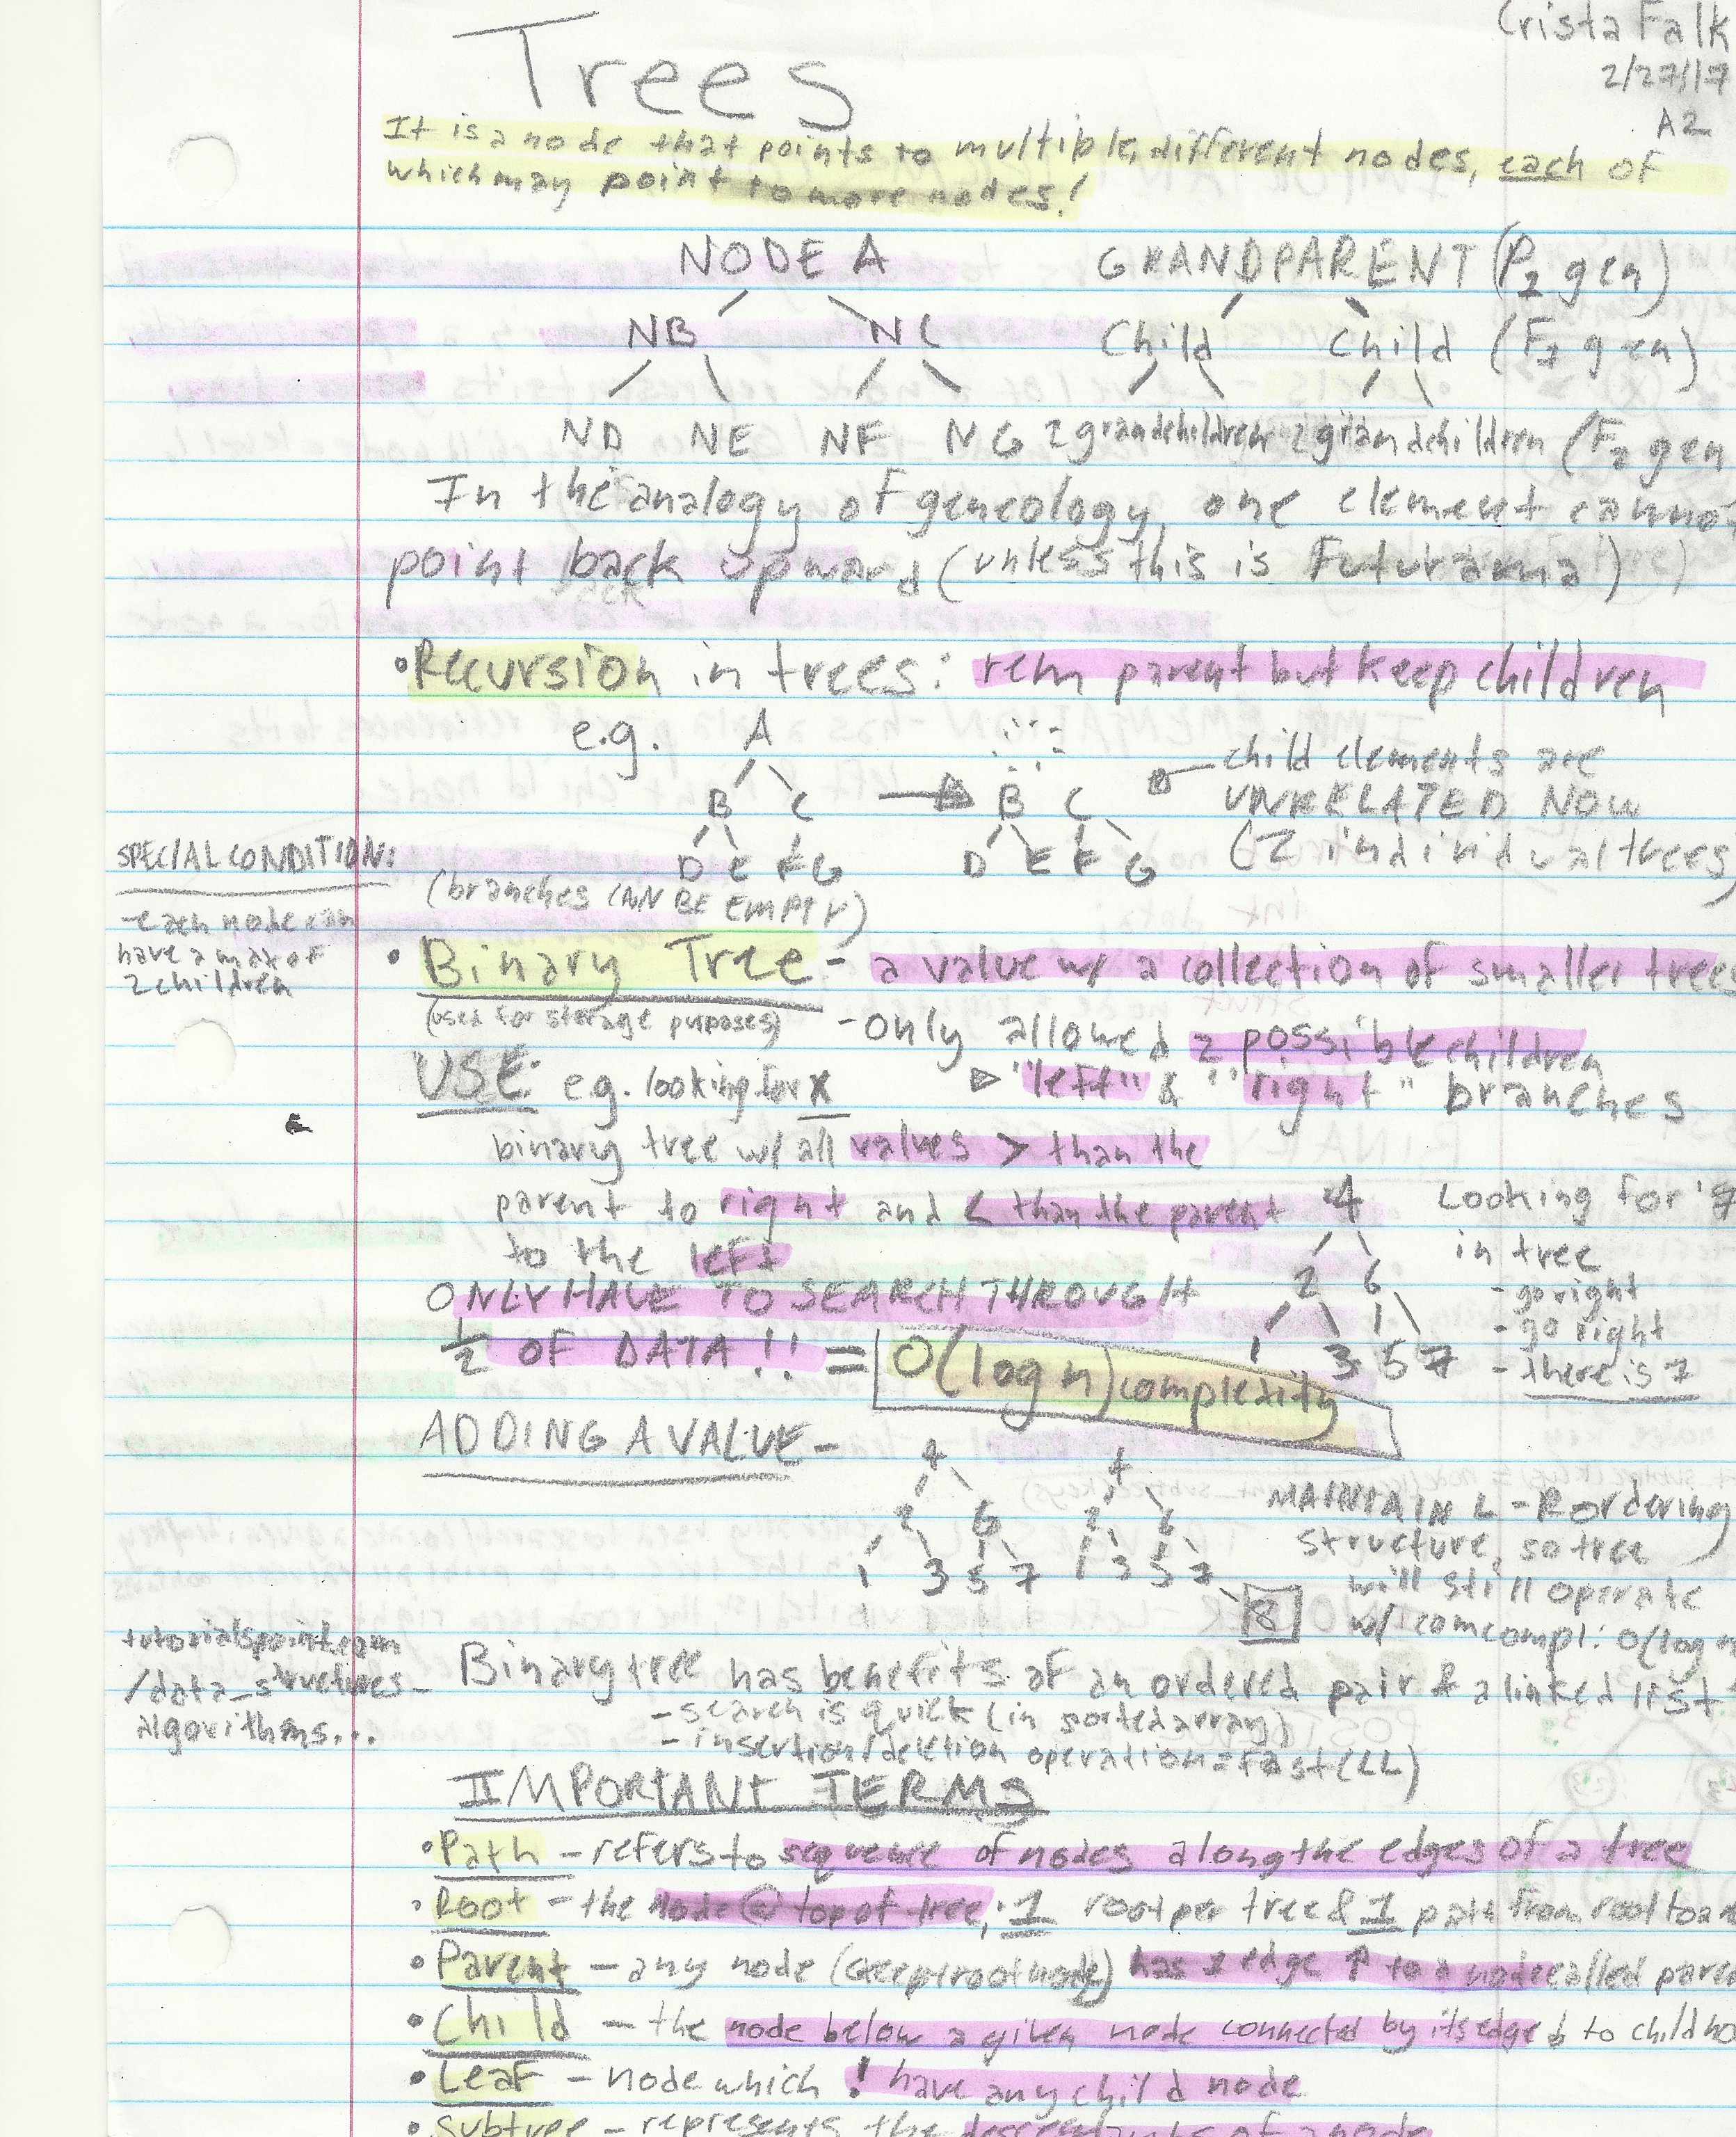 Crista Falk
2/27/17
A2
Trees
It is a node that points to multiple, different nodes, each of
which may point to more nodes!
NODE A
NB NC
ND NE NF NG
GRANDPARENT (P2 gen)
Child Child (F1 gen)
2 grandchildren 2 grandchildren (F2 gen
In the analogy of geneology, one element cannot
point back upward (unless this is Futurama)
• Recursion in trees: rem parent but keep children
e.g.
A
B C
D E F G
B C
D E F G
child elements are
UNRELATED NOW
(2 individual trees)
SPECIAL CONDITION:
- each node can
have a max of
2 children
(branches CAN BE EMPTY)
• Binary Tree - a value w/ a collection of smaller trees
(used for storage purposes)
- only allowed 2 possible children
"left" & "right" branches
USE: e.g. looking for X
binary tree w/ all values > than the
parent to right and < than the parent
to the left
ONLY HAVE TO SEARCH THROUGH
1/2 OF DATA!! = O(log n) complexity
4
2 6
1 3 5 7
Looking for '7
in tree
- go right
- go right
- there is 7
ADDING A VALUE -
4
2 6
1 3 5 7
4
2 6
1 3 5 7
8
MAINTAIN L-R ordering
structure, so tree
will still operate
w/ comcompl: O(log n
tutorialspoint.com
/data_structures_
algorithms...
Binary tree has benefits of an ordered pair & a linked list
- search is quick (in sorted array)
- insertion/deletion operation = fast (LL)
IMPORTANT TERMS
• Path - refers to sequence of nodes along the edges of a tree
• Root - the node @ top of tree; 1 root per tree & 1 path from root to an
• Parent - any node (except root node) has 1 edge ↑ to a node called pare
• Child - the node below a given node connected by its edge ↓ to child no
• Leaf - node which ! have any child node
• Subtree - represents the descendants of a node